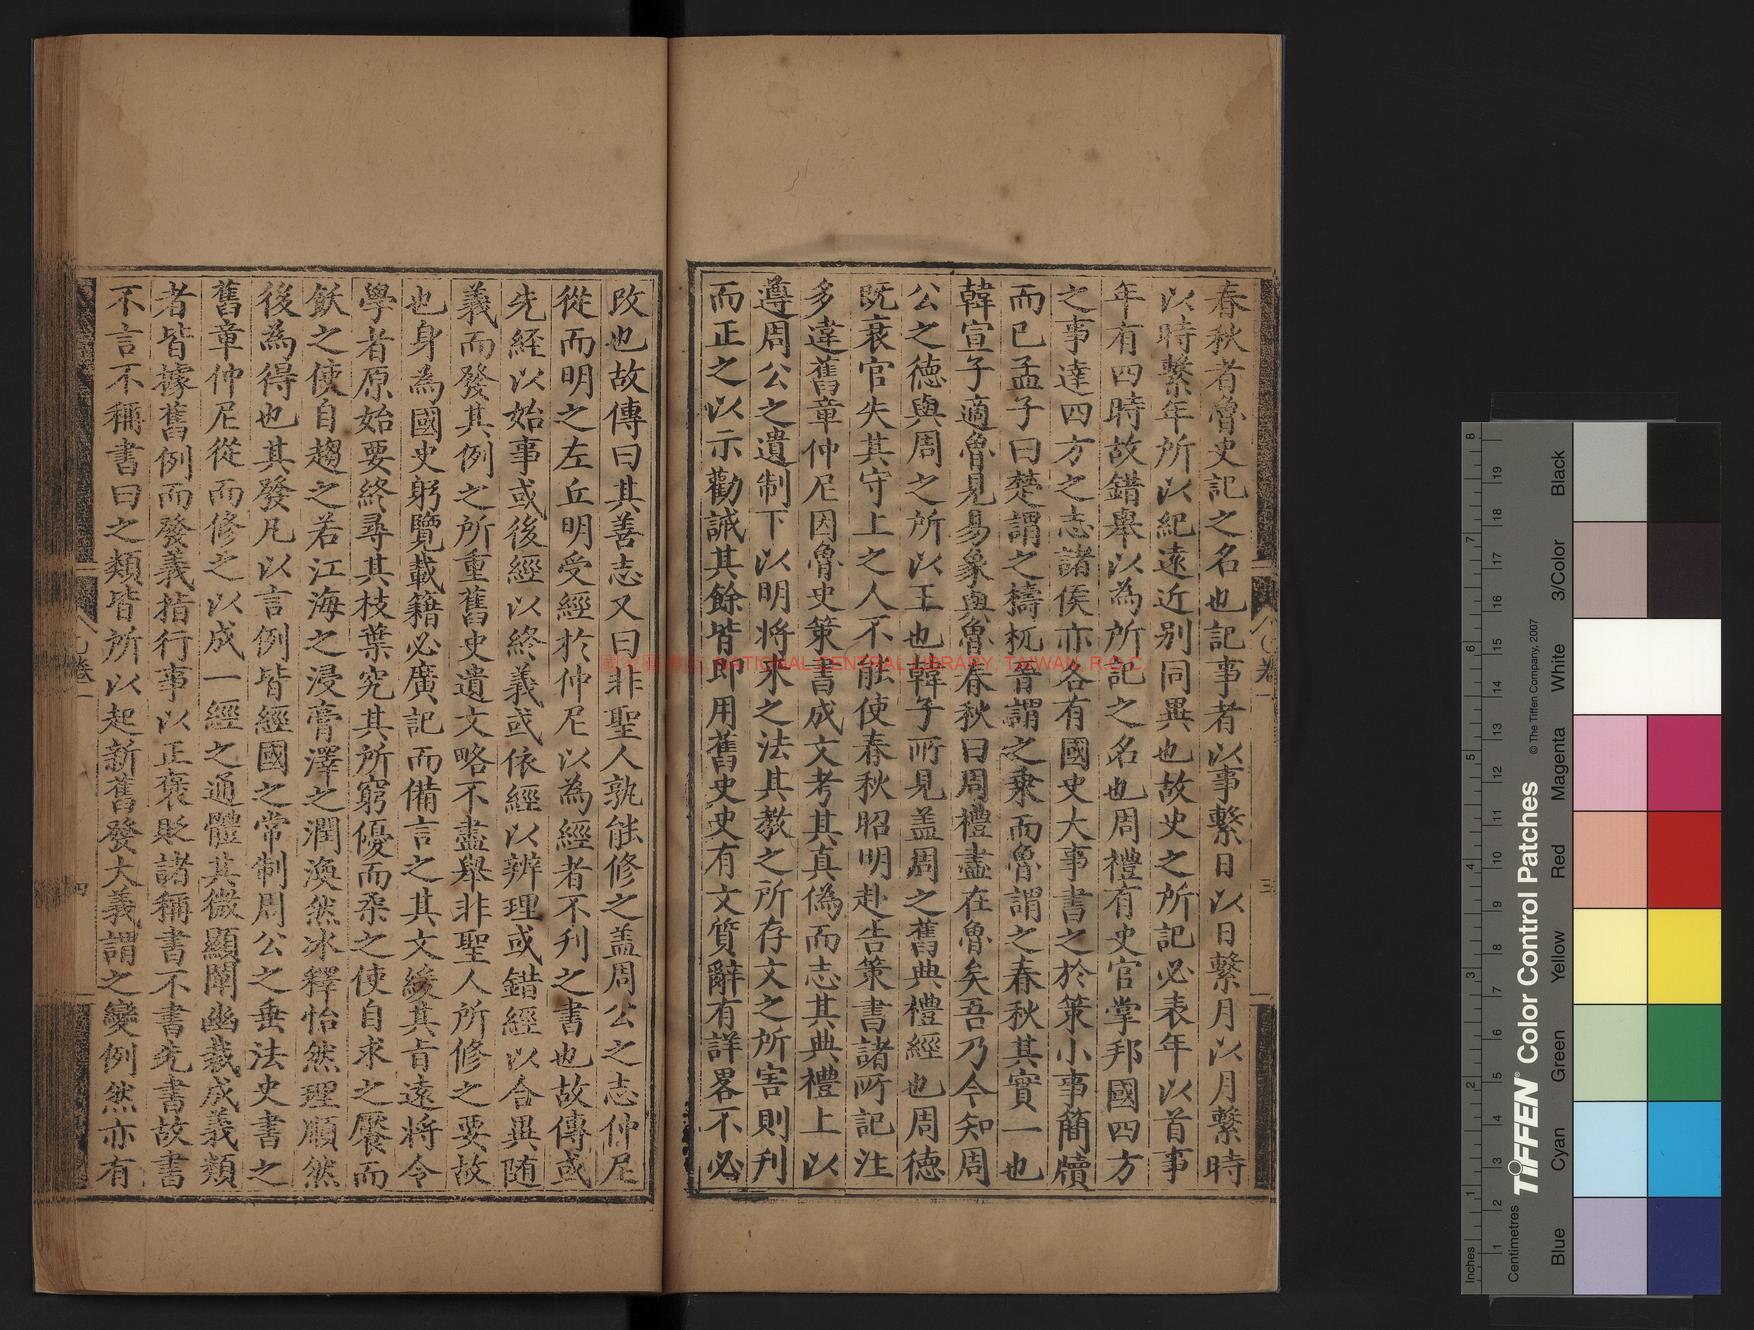 春秋者魯史記之名也記事者以事繫日以日繫月以月繫時
以時繫年所以紀遠近別同異也故史之所記必表年以首事
年有四時故錯舉以為所記之名也周禮有史官掌邦國四方
之事達四方之志諸侯亦各有國史大事書之於策小事簡牘
而已孟子曰楚謂之檮杌晉謂之乗而魯謂之春秋其實一也
韓宣子適魯見易象與魯春秋曰周禮盡在魯矣吾乃今知周
公之德與周之所以王也韓子所見盖周之舊典禮經也周德
既衰官失其守上之人不能使春秋昭明赴告策書諸所記注
多違舊章仲尼因魯史策書成文考其真偽而志其典禮上以
遵周公之遺制下以明將來之法其教之所存文之所害則刋
而正之以示勸誡其餘皆即用舊史史有文質辭有詳畧不必
改也故傳曰其善志又曰非聖人孰能修之盖周公之志仲尼
從而明之左丘明受經於仲尼以為經者不刋之書也故傳或
先經以始事或後經以終義或依經以辨理或錯經以合異随
義而發其例之所重舊史遺文略不盡舉非聖人所修之要故
也身為國史躬覽載籍必廣記而備言之其文緩其旨遠將令
學者原始要終尋其枝葉究其所窮優而柔之使自求之饜而
飫之使自趨之若江海之浸膏澤之潤渙然冰釋怡然理順然
後為得也其發凡以言例皆經國之常制周公之垂法史書之
舊章仲尼從而修之以成一經之通體其微顯闡幽裁成義類
者皆據舊例而發義指行事以正褒貶諸稱書不書先書故書
不言不稱書曰之類皆所以起新舊發大義謂之變例然亦有
卷一
三
卷一
四
國家圖書館, NATIONAL CENTRAL LIBRARY, TAIWAN, R.O.C.
TIFFEN® Color Control Patches
© The Tiffen Company, 2007
Centimetres
Inches
Blue
Cyan
Green
Yellow
Red
Magenta
White
3/Color
Black
1 2 3 4 5 6 7 8 9 10 11 12 13 14 15 16 17 18 19
1 2 3 4 5 6 7 8